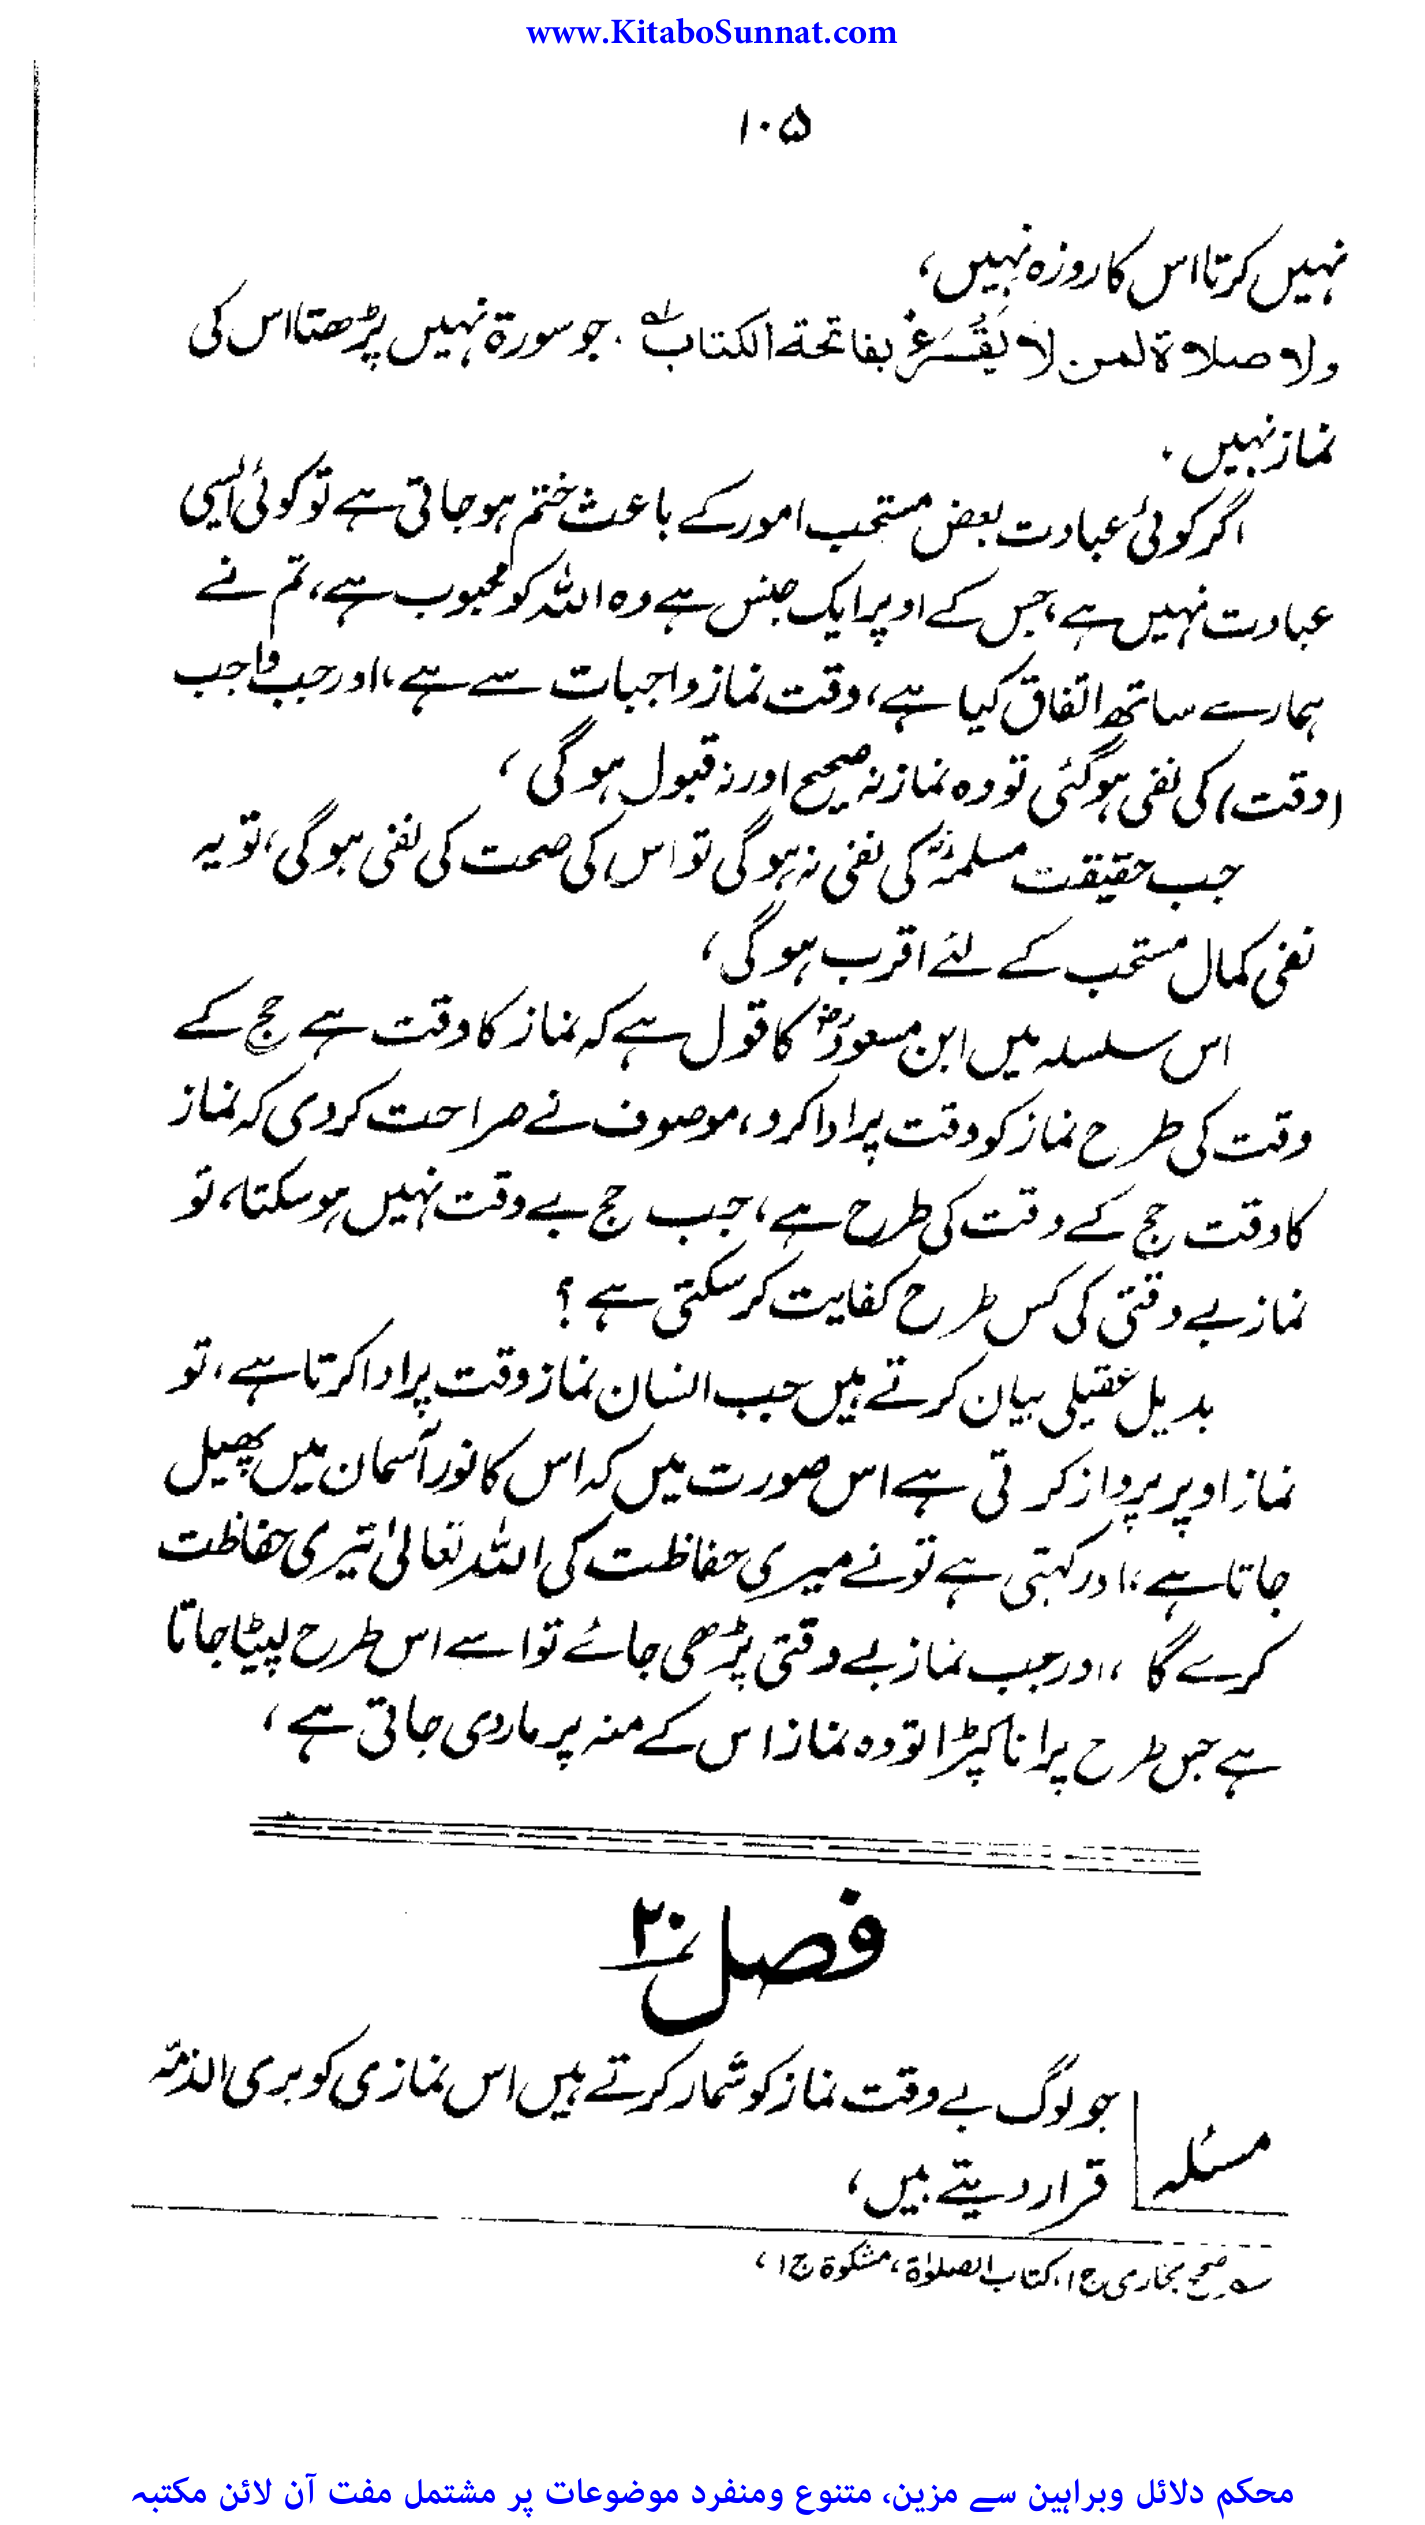 www.KitaboSunnat.com
۱۰۵
نہیں کرتا اس کا روزہ نہیں،
ولا صلاة لمن لا يَقُرَءُ بفاتحة الكتاب لہ . جو سورۃ نہیں پڑھتا اس کی
نماز نہیں .
اگر کوئی عبادت بعض مستحب امور کے باعث ختم ہو جاتی ہے تو کوئی ایسی
عبادت نہیں ہے، جس کے اوپر ایک جنس ہے وہ اللہ کو محبوب ہے، تم نے
ہمارے ساتھ اتفاق کیا ہے، وقت نماز واجبات سے ہے، اور جب واجب
(وقت) کی نفی ہو گئی تو وہ نماز نہ صحیح اور نہ قبول ہو گی،
جب حقیقت مسلمہ کی نفی نہ ہو گی تو اس کی صحت کی نفی ہو گی، تو یہ
نفی کمال مستحب کے لئے اقرب ہو گی،
اس سلسلہ میں ابن مسعودؓ کا قول ہے کہ نماز کا وقت ہے حج کے
وقت کی طرح نماز کو وقت پر ادا کرو، موصوف نے صراحت کر دی کہ نماز
کا وقت حج کے وقت کی طرح ہے، جب حج بے وقت نہیں ہو سکتا، تو
نماز بے وقتی کی کس طرح کفایت کر سکتی ہے؟
بدیل عقیلی بیان کرتے ہیں جب انسان نماز وقت پر ادا کرتا ہے، تو
نماز اوپر پرواز کرتی ہے اس صورت میں کہ اس کا نور آسمان میں پھیل
جاتا ہے، اور کہتی ہے تو نے میری حفاظت کی اللہ تعالیٰ تیری حفاظت
کرے گا،، اور جب نماز بے وقتی پڑھی جائے تو اسے اس طرح لپیٹا جاتا
ہے جس طرح پرانا کپڑا تو وہ نماز اس کے منہ پر مار دی جاتی ہے،
فصل نمبر ۲۰
مسئلہ جو لوگ بے وقت نماز کو شمار کرتے ہیں اس نمازی کو بری الذمّہ
قرار دیتے ہیں،
لہ صحیح بخاری ج۱، کتاب الصلوٰۃ، مشکوۃ ج۱،
محکم دلائل وبراہین سے مزین، متنوع ومنفرد موضوعات پر مشتمل مفت آن لائن مکتبہ